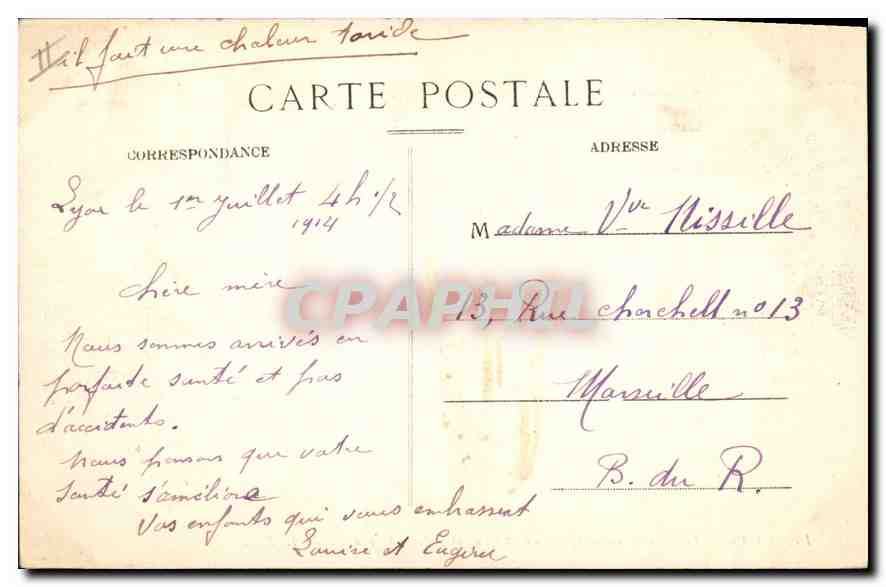 il fait une chaleur toride
CARTE POSTALE
CORRESPONDANCE
ADRESSE
Lyon le 1er Juillet 4h 1/2
1914
Madame Vve Nissille
chère mère
CPAPHIL
13, Rue chorchell no 13
Nous sommes arrivés en
parfaite santé et pas
Marseille
d'accidents.
nous pensons que votre
B. du R.
santé s'améliore
Vos enfants qui vous embrassent
Louise et Eugène